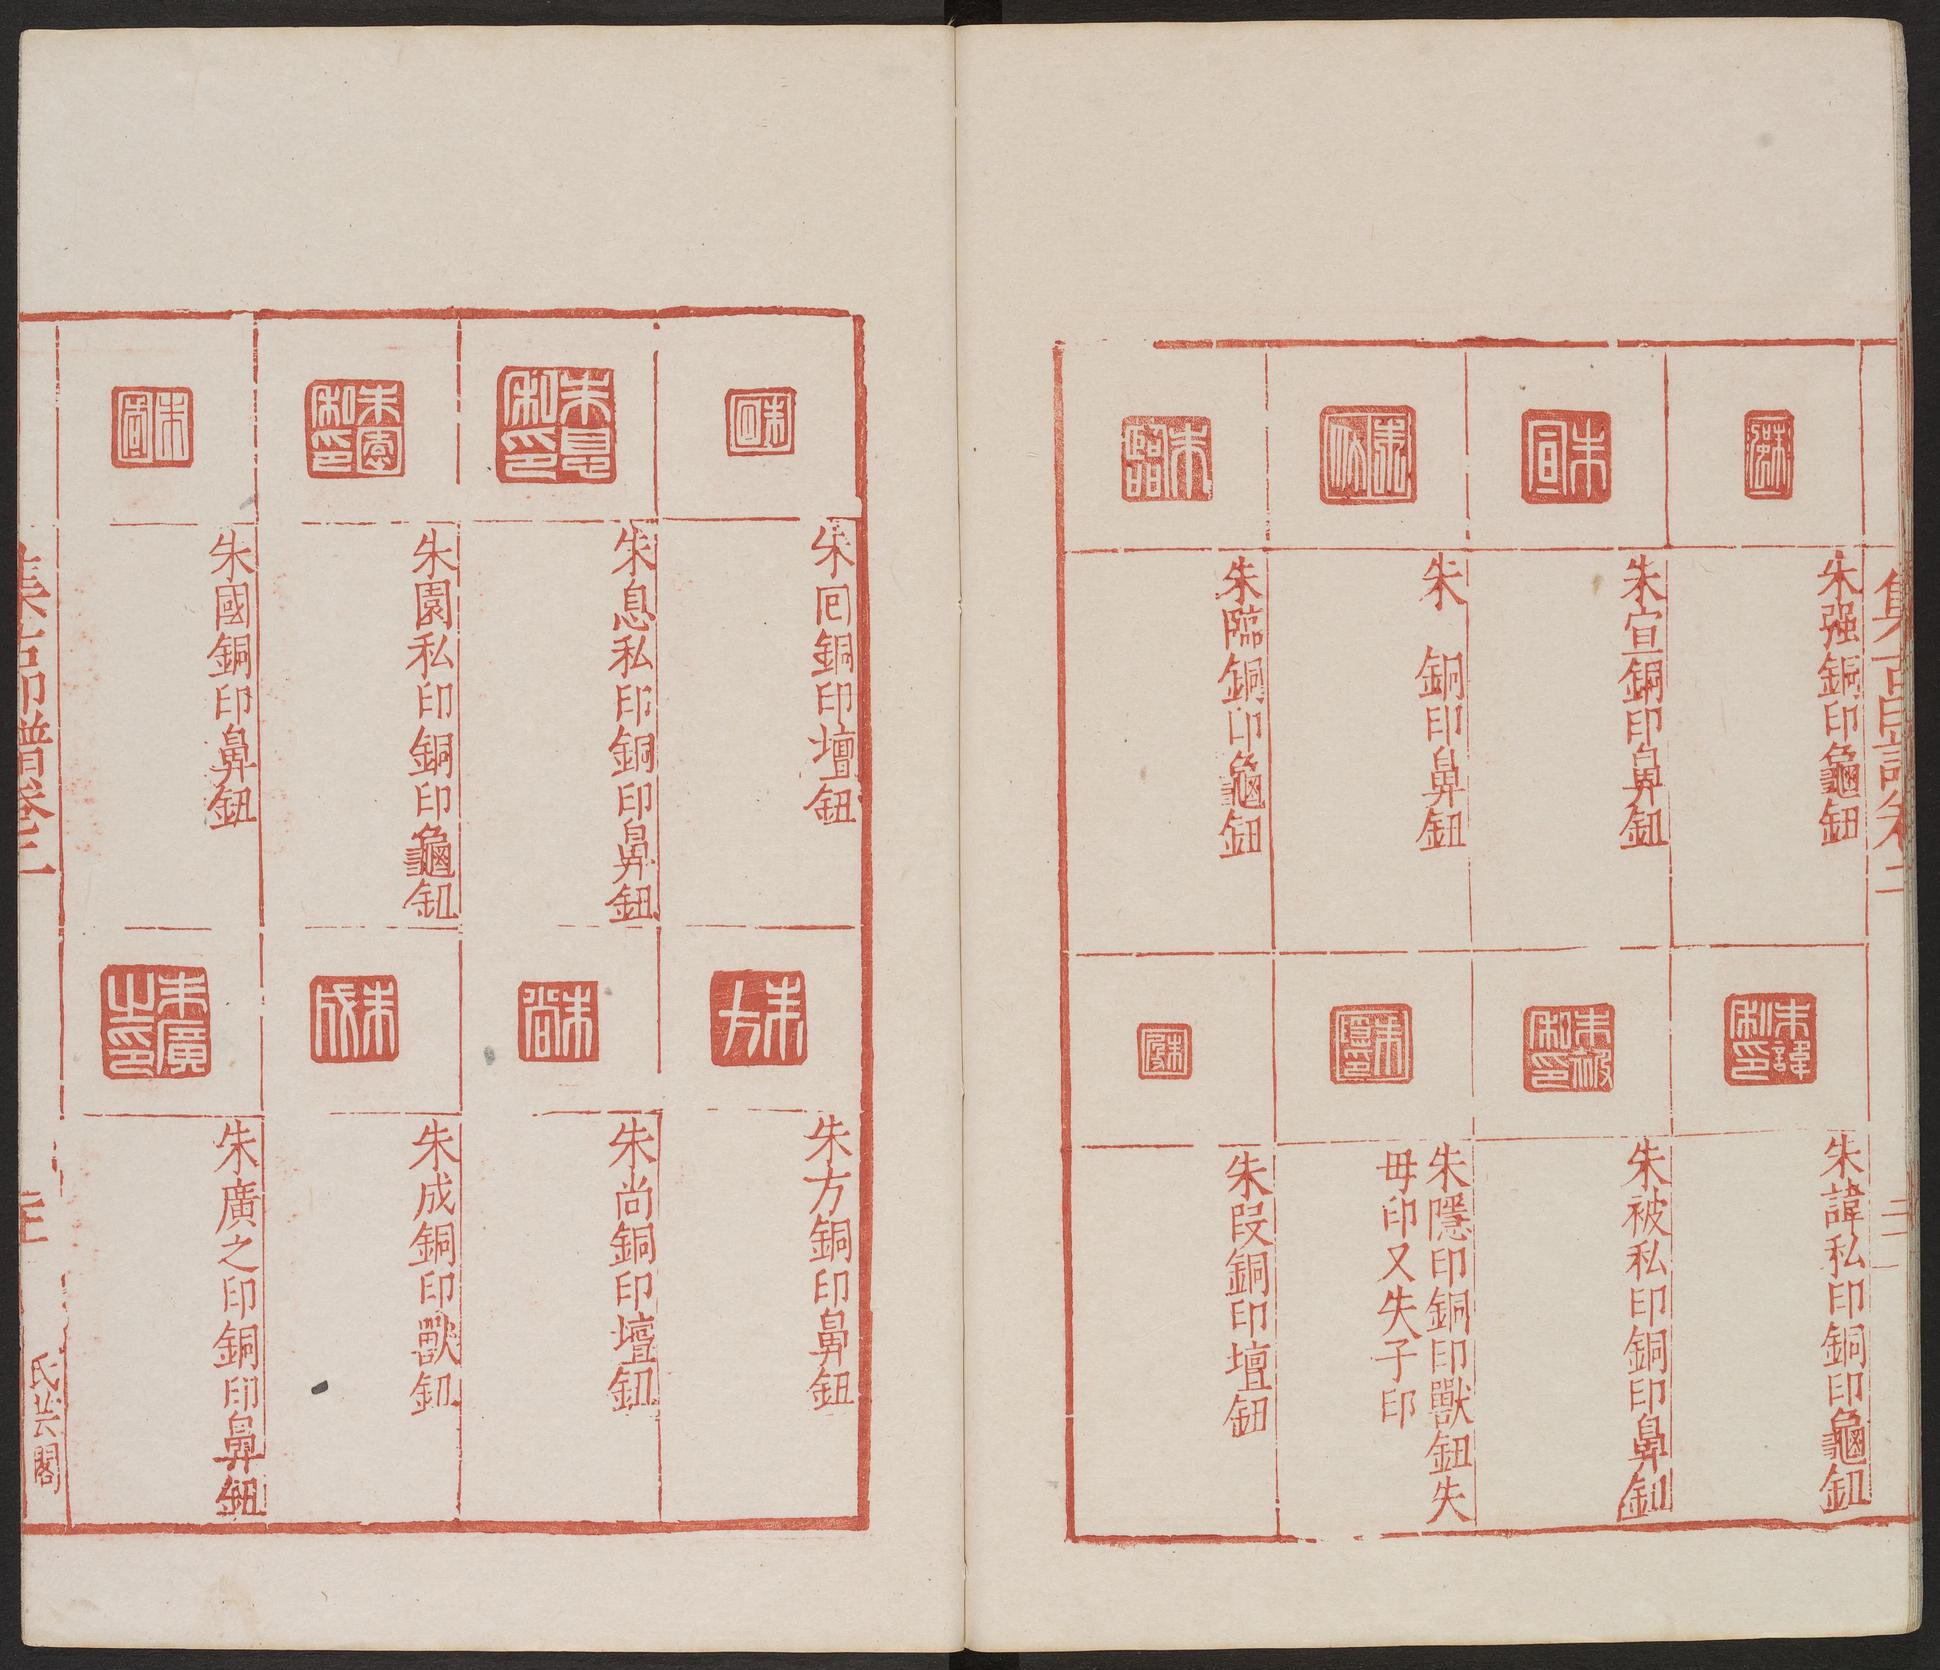 集古印譜卷二
朱强銅印龜鈕
朱宣銅印鼻鈕
朱 銅印鼻鈕
朱臨銅印龜鈕
朱諱私印銅印龜鈕
朱被私印銅印鼻鈕
朱隱印銅印獸鈕失
毋印又失子印
朱叚銅印壇鈕
朱回銅印壇鈕
朱息私印銅印鼻鈕
朱園私印銅印龜鈕
朱國銅印鼻鈕
朱方銅印鼻鈕
朱尚銅印壇鈕
朱成銅印獸鈕
朱廣之印銅印鼻鈕
集古印譜卷二
氏芸閣